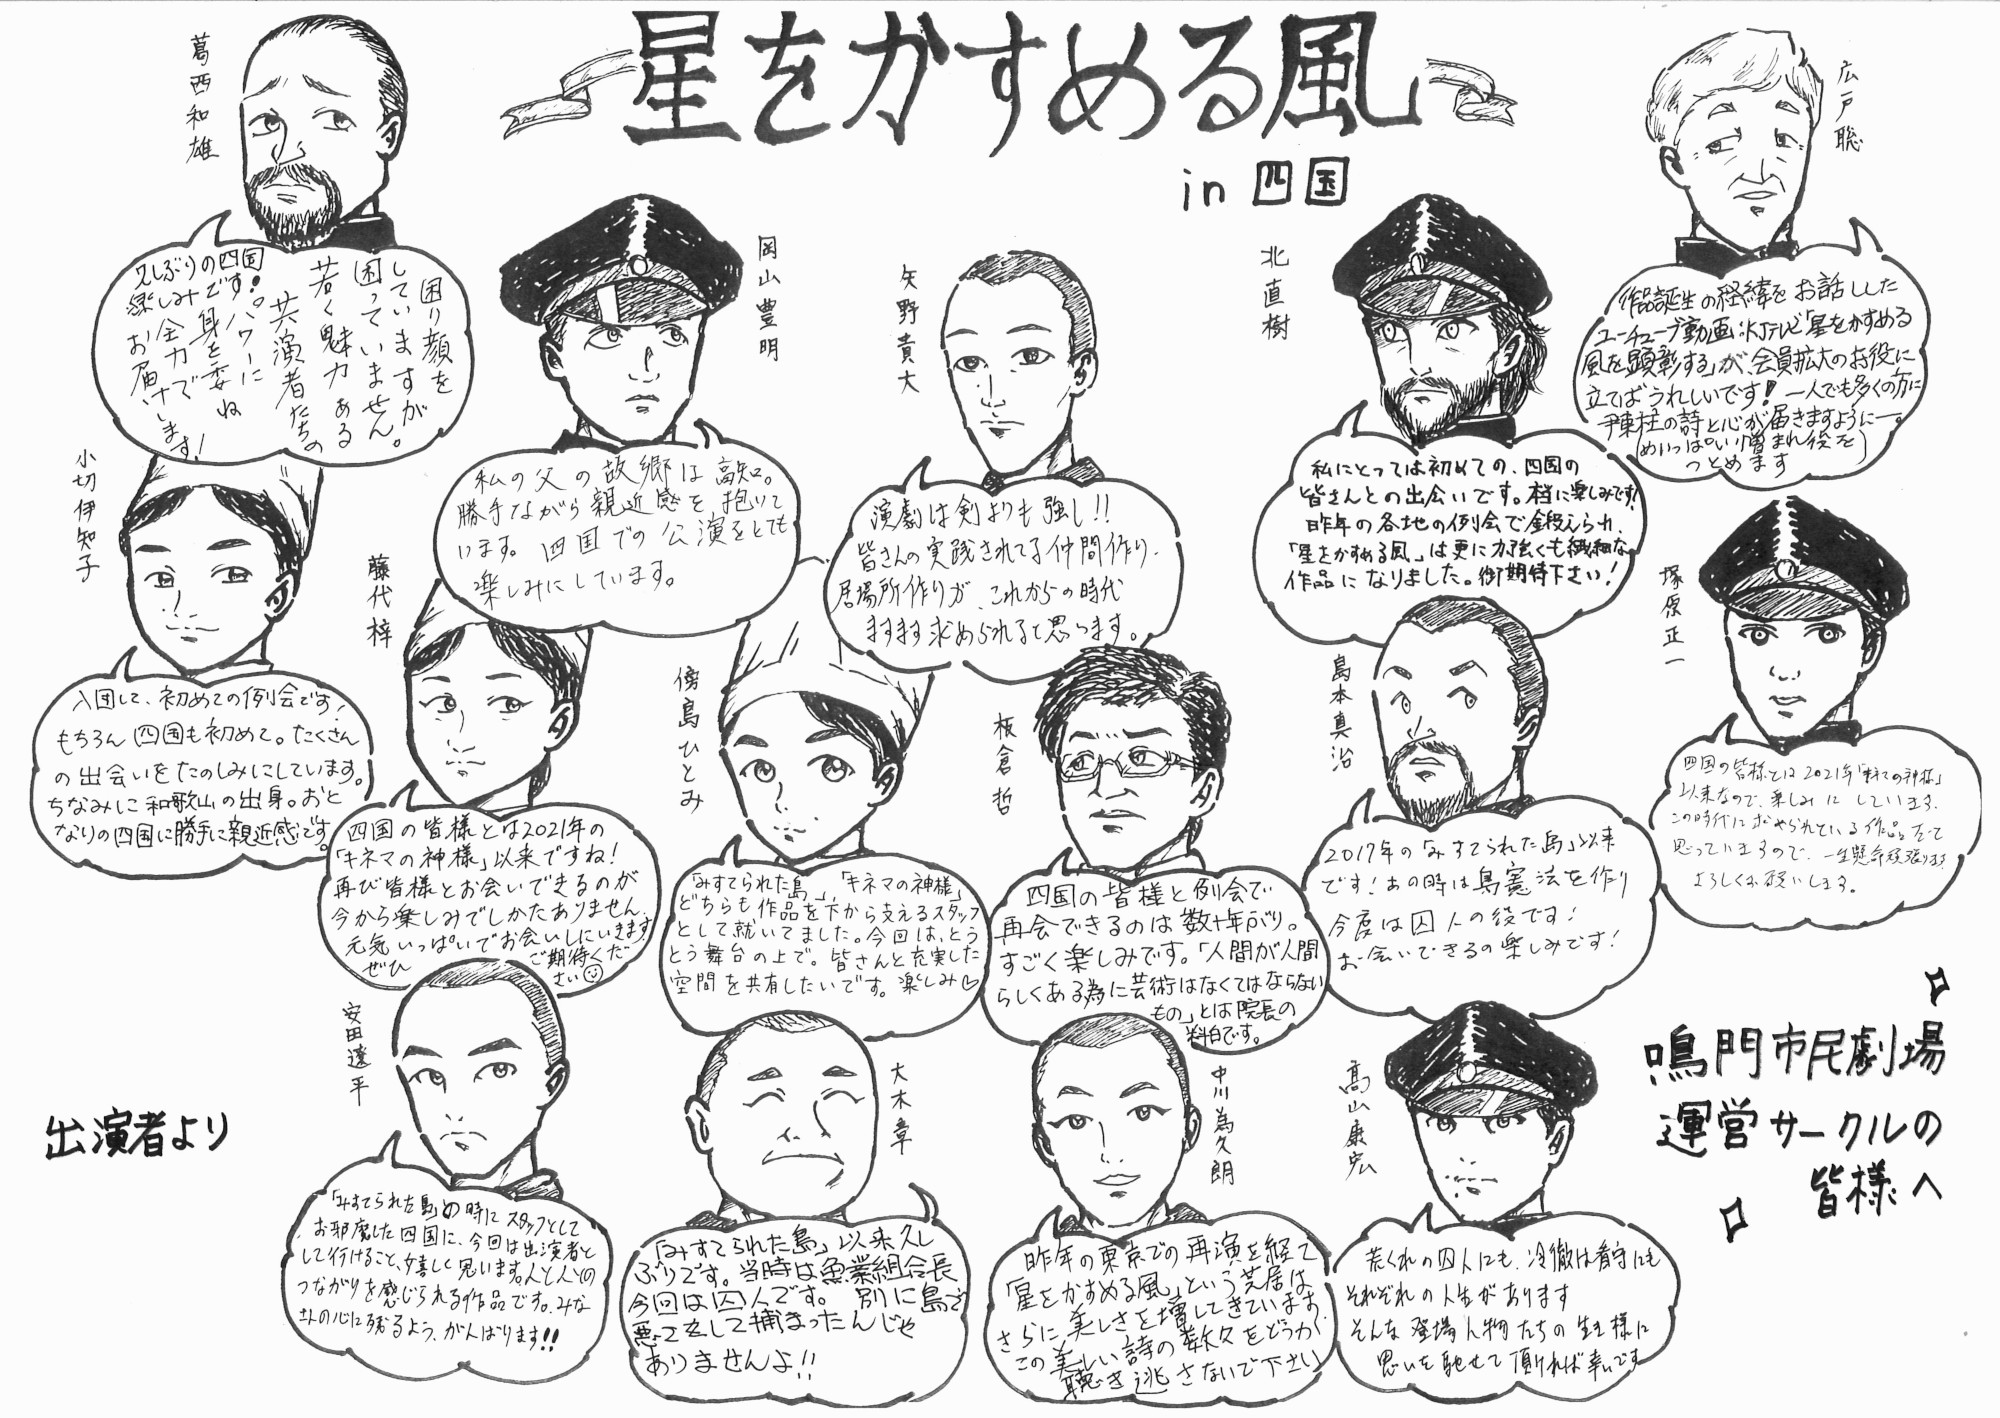 星をかすめる風
in 四国
葛西和雄
困り顔を
していますが、
困っていません。
若く魅力ある
共演者たちの
パワーに
身を委ね
全力で
お届けします!
久しぶりの四国
楽しみです!
岡山豊明
私の父の故郷は高知。
勝手ながら親近感を抱いて
います。四国での公演をとても
楽しみにしています。
矢野貴大
演劇は剣よりも強し!!
皆さんの実践されてる仲間作り、
居場所作りが、これからの時代
ますます求められると思います。
北直樹
私にとっては初めての、四国の
皆さんとの出会いです。本当に楽しみです!
昨年の各地の例会で鍛えられ、
「星をかすめる風」は更に力強くも繊細な
作品になりました。御期待下さい!
広戸聡
作品誕生の経緯をお話しした
ユーチューブ動画:KJテレビ「星をかすめる
風を顕彰する」が、会員拡大のお役に
立てばうれしいです!一人でも多くの方に
尹東柱の詩と心が届きますように―。
(めいっぱい憎まれ役を
つとめます)
小切伊知子
入団して、初めての例会です!
もちろん四国も初めて。たくさん
の出会いをたのしみにしています。
ちなみに和歌山の出身。おと
なりの四国に勝手に親近感です。
藤代梓
四国の皆様とは2021年の
「キネマの神様」以来ですね!
再び皆様とお会いできるのが
今から楽しみでしかたありません。
元気いっぱいでお会いしにいきます。
ぜひ ご期待くだ
さい☺
傍島ひとみ
「みすてられた島」、「キネマの神様」
どちらも作品を下から支えるスタッフ
として就いてました。今回は、とう
とう舞台の上で。皆さんと充実した
空間を共有したいです。楽しみ♡
板倉哲
四国の皆様と例会で
再会できるのは数十年ぶり。
すごく楽しみです。「人間が人間
らしくある為に芸術はなくてはならない
もの」とは院長の
科白です。
島本真治
2017年の「みすてられた島」以来
です!あの時は島憲法を作り
今度は囚人の役です!
お会いできるの楽しみです!
塚原正一
四国の皆様とは2021年「キネマの神様」
以来なので、楽しみにしています。
この時代に求められている作品だと
思っていますので、一生懸命頑張ります
よろしくお願いします。
安田遼平
「みすてられた島」の時にスタッフとして
お邪魔した四国に、今回は出演者と
して行けること、嬉しく思います。人と人の
つながりを感じられる作品です。みな
さんの心に残るよう、がんばります!!
大木章
「みすてられた島」以来久し
ぶりです。当時は魚業組合長
今回は囚人です。別に島で
悪って玄して捕まったんじゃ
ありませんよ!!
中川為久朗
昨年の東京での再演を経て
「星をかすめる風」という芝居は、
さらに美しさを増してきています。
この美しい詩の数々をどうか
聴き逃さないで下さい
髙山康宏
荒くれの囚人にも、冷徹は看守にも
それぞれの人生があります
そんな登場人物たちの生き様に
思いを馳せて頂ければ幸いです
出演者より
鳴門市民劇場
運営サークルの
皆様へ